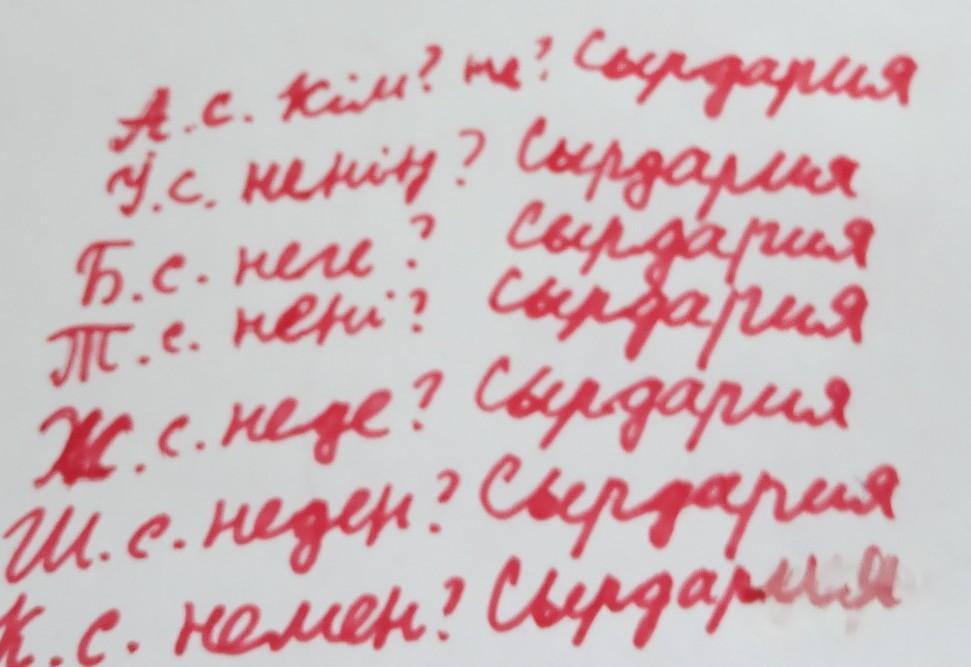 А.с. Кім? не? Сырдария
І.с. ненің? Сырдария
Б.с. неге? Сырдария
Т.с. нені? Сырдария
Ж.с. неде? Сырдария
Ш.с. неден? Сырдария
К.с. немен? Сырдария